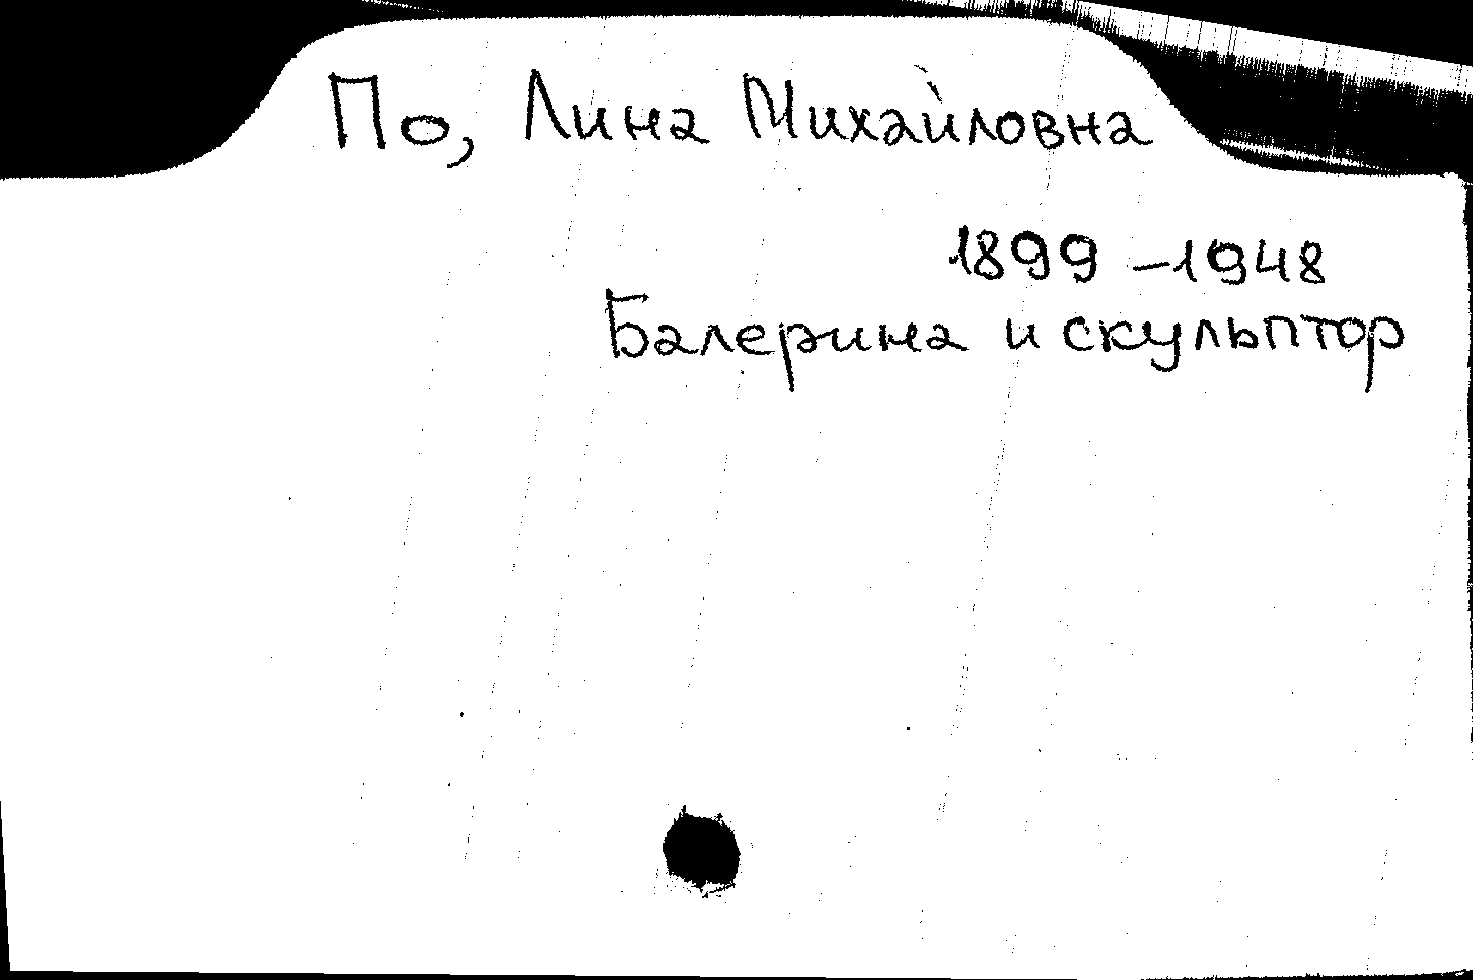 По, Лина Михайловна
1899 – 1948
Балерина и скульптор